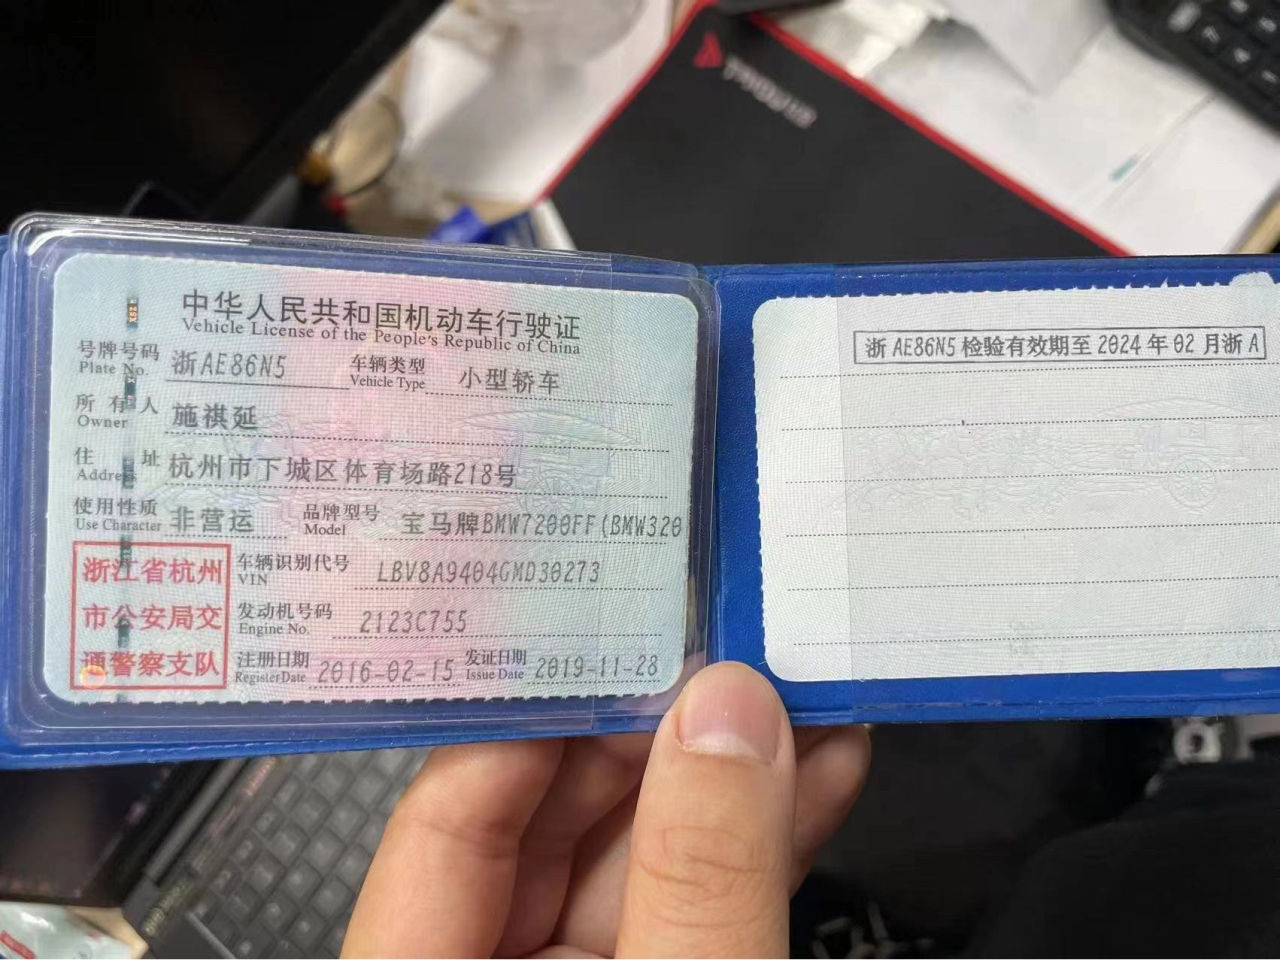 中华人民共和国机动车行驶证
Vehicle License of the People's Republic of China
号牌号码 浙AE86N5 车辆类型 小型轿车
Plate No. Vehicle Type
所有人 施祺延
Owner
住址 杭州市下城区体育场路218号
Address
使用性质 非营运 品牌型号 宝马牌BMW7200FF(BMW320
Use Character Model
浙江省杭州市公安局交通警察支队
车辆识别代号 LBV8A9404GMD30273
VIN
发动机号码 2123C755
Engine No.
注册日期 2016-02-15 发证日期 2019-11-28
Register Date Issue Date
浙AE86N5检验有效期至2024年02月浙A